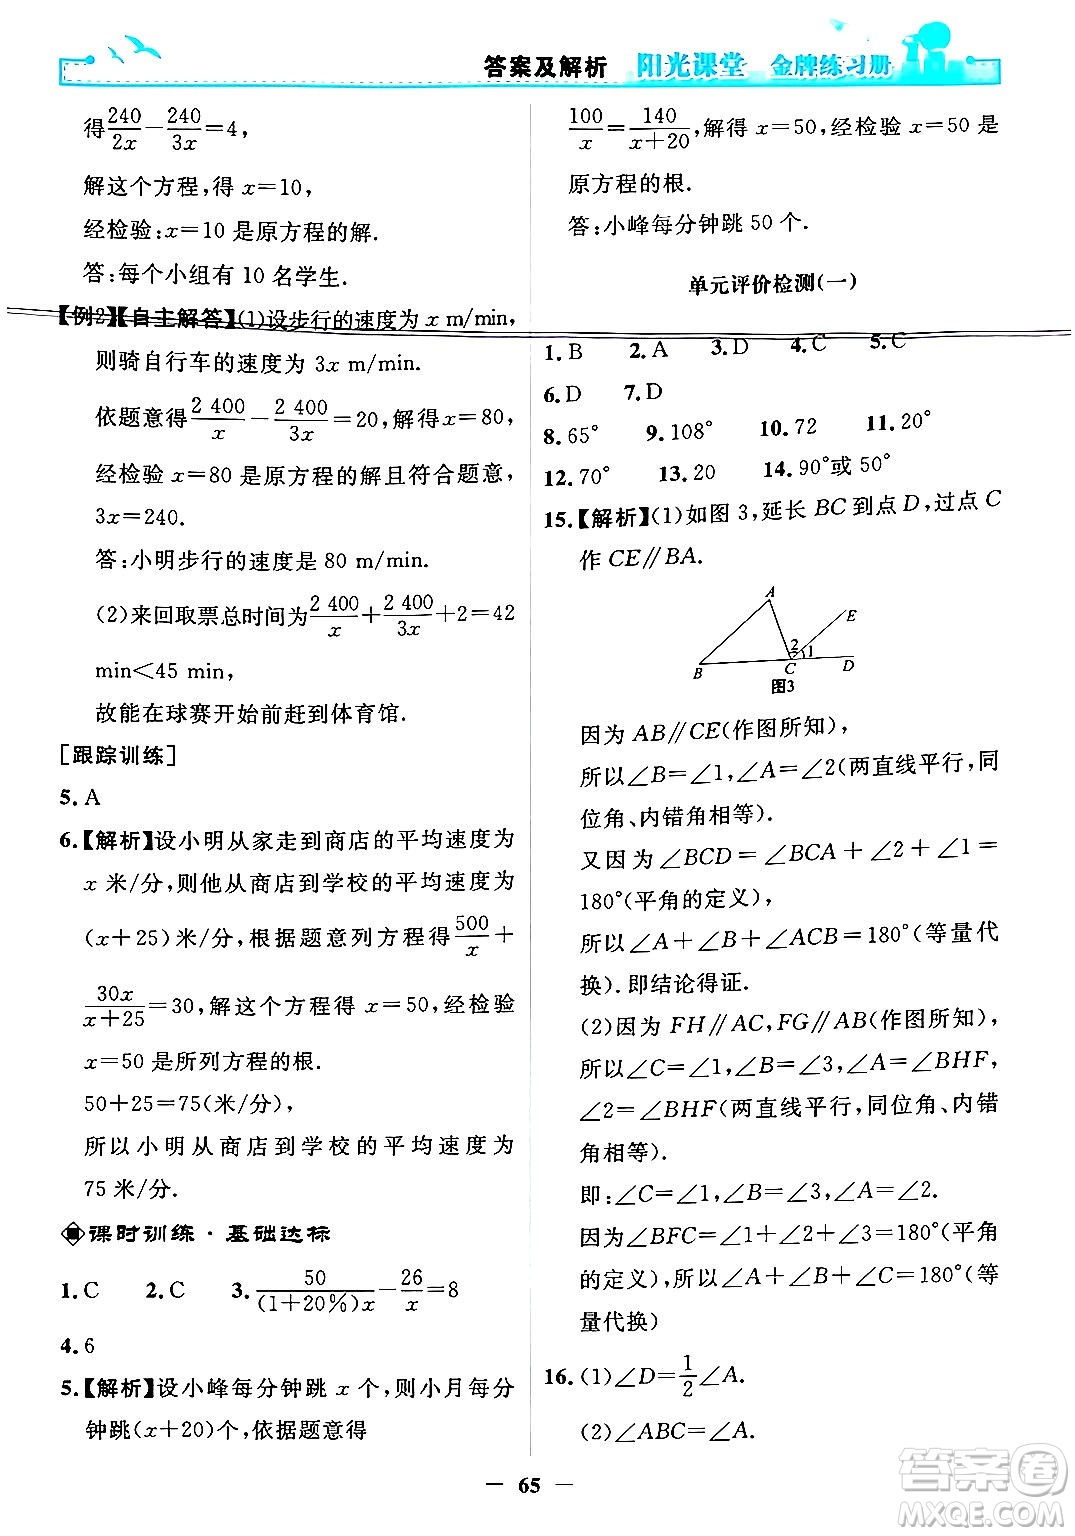 答案及解析 阳光课堂 金牌练习册
得240/2x−240/3x=4,
解这个方程,得 x=10,
经检验:x=10 是原方程的解.
答:每个小组有 10 名学生.
【例2】【自主解答】(1)设步行的速度为 x m/min,
则骑自行车的速度为 3x m/min.
依题意得2 400/x−2 400/3x=20,解得 x=80,
经检验 x=80 是原方程的解且符合题意,
3x=240.
答:小明步行的速度是 80 m/min.
(2)来回取票总时间为2 400/x+2 400/3x+2=42
min<45 min,
故能在球赛开始前赶到体育馆.
[跟踪训练]
5.A
6.【解析】设小明从家走到商店的平均速度为
x 米/分,则他从商店到学校的平均速度为
(x+25)米/分,根据题意列方程得500/x+
30x/x+25=30,解这个方程得 x=50,经检验
x=50 是所列方程的根.
50+25=75(米/分),
所以小明从商店到学校的平均速度为
75 米/分.
课时训练·基础达标
1.C 2.C 3.50/(1+20%)x−26/x=8
4.6
5.【解析】设小峰每分钟跳 x 个,则小月每分
钟跳(x+20)个,依据题意得
100/x=140/x+20,解得 x=50,经检验 x=50 是
原方程的根.
答:小峰每分钟跳 50 个.
单元评价检测(一)
1.B 2.A 3.D 4.C 5.C
6.D 7.D
8.65° 9.108° 10.72 11.20°
12.70° 13.20 14.90°或 50°
15.【解析】(1)如图 3,延长 BC 到点 D,过点 C
作 CE∥BA.
A
E
2
1
B
C
D
图3
因为 AB∥CE(作图所知),
所以∠B=∠1,∠A=∠2(两直线平行,同
位角、内错角相等).
又因为∠BCD=∠BCA+∠2+∠1=
180°(平角的定义),
所以∠A+∠B+∠ACB=180°(等量代
换).即结论得证.
(2)因为 FH∥AC,FG∥AB(作图所知),
所以∠C=∠1,∠B=∠3,∠A=∠BHF,
∠2=∠BHF(两直线平行,同位角、内错
角相等).
即:∠C=∠1,∠B=∠3,∠A=∠2.
因为∠BFC=∠2+∠1+∠3=180°(平角
的定义),所以∠A+∠B+∠C=180°(等
量代换)
16.(1)∠D=1/2∠A.
(2)∠ABC=∠A.
— 65 —
答案圈
MXQE.COM